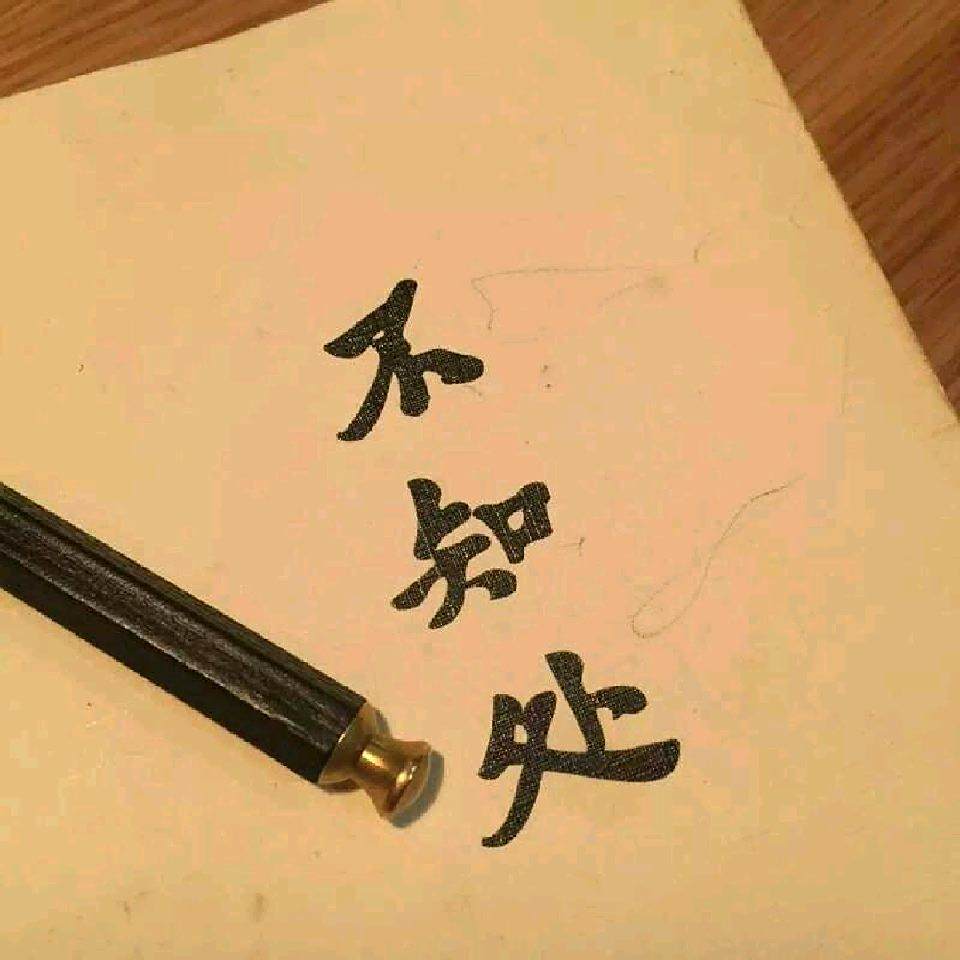 不知处